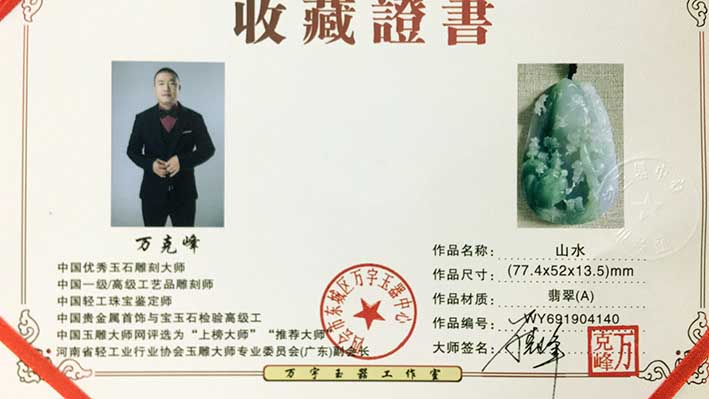 收藏證書
万克峰
中国优秀玉石雕刻大师
中国一级/高级工艺品雕刻师
中国轻工珠宝鉴定师
中国贵金属首饰与宝玉石检验高级工
中国玉雕大师网评选为“上榜大师”“推荐大师”
河南省轻工业行业协会玉雕大师专业委员会(广东)副会长
会市东城区万宇玉器中心
作品名称: 山水
作品尺寸: (77.4x52x13.5)mm
作品材质: 翡翠(A)
作品编号: WY691904140
大师签名:
万克峰
万宇玉器工作室